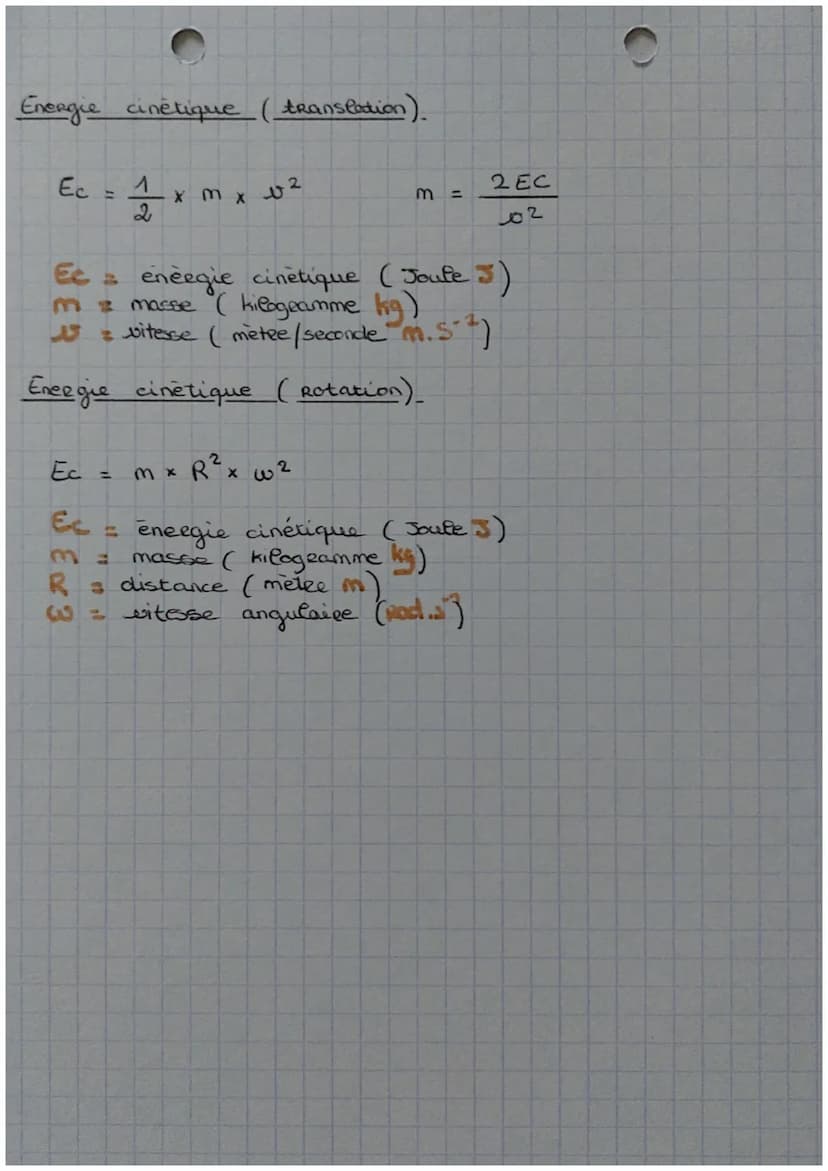 Energie cinétique (translation).
Ec = 1/2 x m x v² m = 2EC/v²
Ec = énéergie cinétique (Joule J)
m = masse (kilogramme kg)
v = vitesse (mètre/seconde m.s⁻¹)
Energie cinétique (Rotation).
Ec = m x R² x ω²
Ec = énergie cinétique (Joule J)
m = masse (kilogramme kg)
R = distance (mètre m)
ω = vitesse angulaire (rad.s⁻¹)